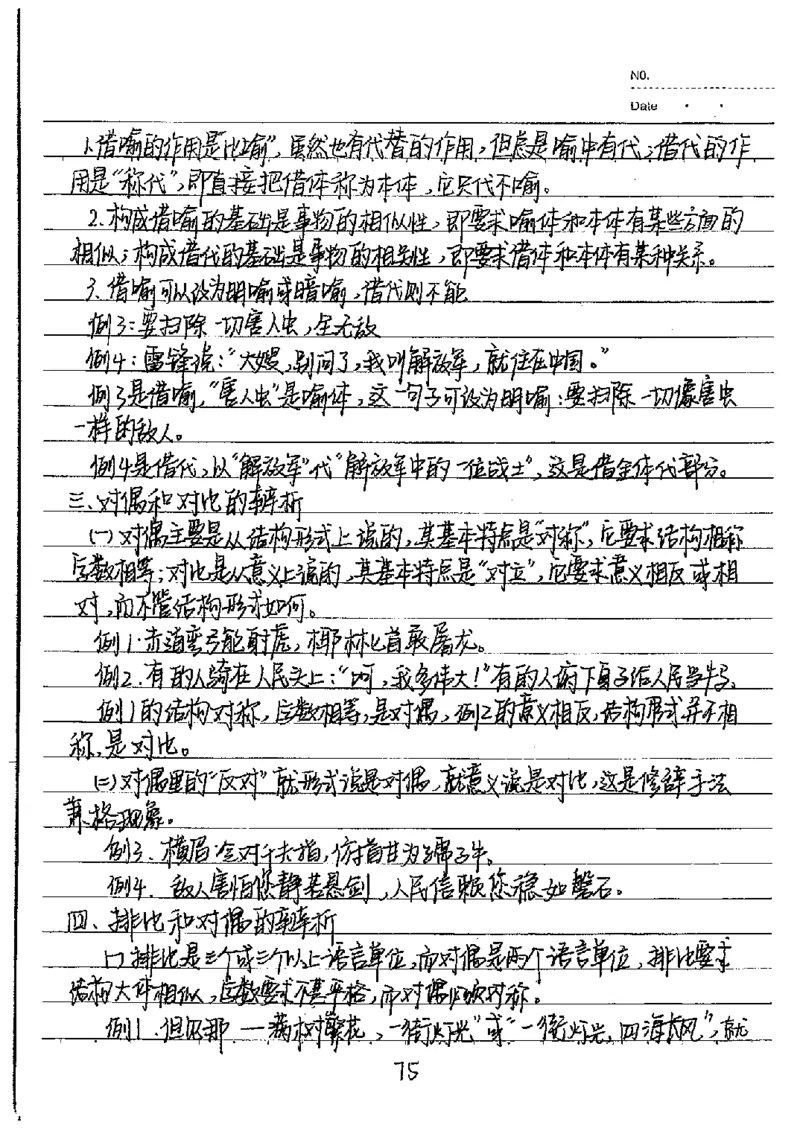 NO.
Date
1.借喻的作用是"比喻",虽然也有代替的作用,但总是喻中有代;借代的作
用是"称代",即直接把借体称为本体,它只代不喻。
2.构成借喻的基础是事物的相似性,即要求喻体和本体有某些方面的
相似;构成借代的基础是事物的相关性,即要求借体和本体有某种关系。
3.借喻可以改为明喻或暗喻,借代则不能
例3:要扫除一切害人虫,全无敌
例4:雷锋说:"大嫂,别问了,我叫解放军,就住在中国。"
例3是借喻,"害人虫"是喻体,这一句子可改为明喻:要扫除一切像害虫
一样的敌人。
例4是借代,以"解放军"代"解放军中的一位战士",这是借全体代部分。
三、对偶和对比的辨析
(一)对偶主要是从结构形式上说的,其基本特点是"对称",它要求结构相称
字数相等;对比是从意义上说的,其基本特点是"对立",它要求意义相反或相
对,而不管结构形式如何。
例1.赤道弯弓能射虎,椰林匕首敢屠龙。
例2.有的人骑在人民头上:"呵,我多伟大!"有的人俯下身子给人民当牛马。
例1的结构对称,字数相等,是对偶,例2的意义相反,结构形式并不相
称,是对比。
(二)对偶里的"反对"就形式说是对偶,就意义说是对比,这是修辞手法
兼格现象。
例3.横眉冷对千夫指,俯首甘为孺子牛。
例4.敌人害怕你静若悬剑,人民信赖你稳如磐石。
四、排比和对偶的辨析
(一)排比是三个或三个以上语言单位,而对偶是两个语言单位,排比要求
结构大体相似,字数要求不甚严格,而对偶必须对称。
例1.但见那一满树繁花,一街灯光"或"一街灯光,四海长风",就
75